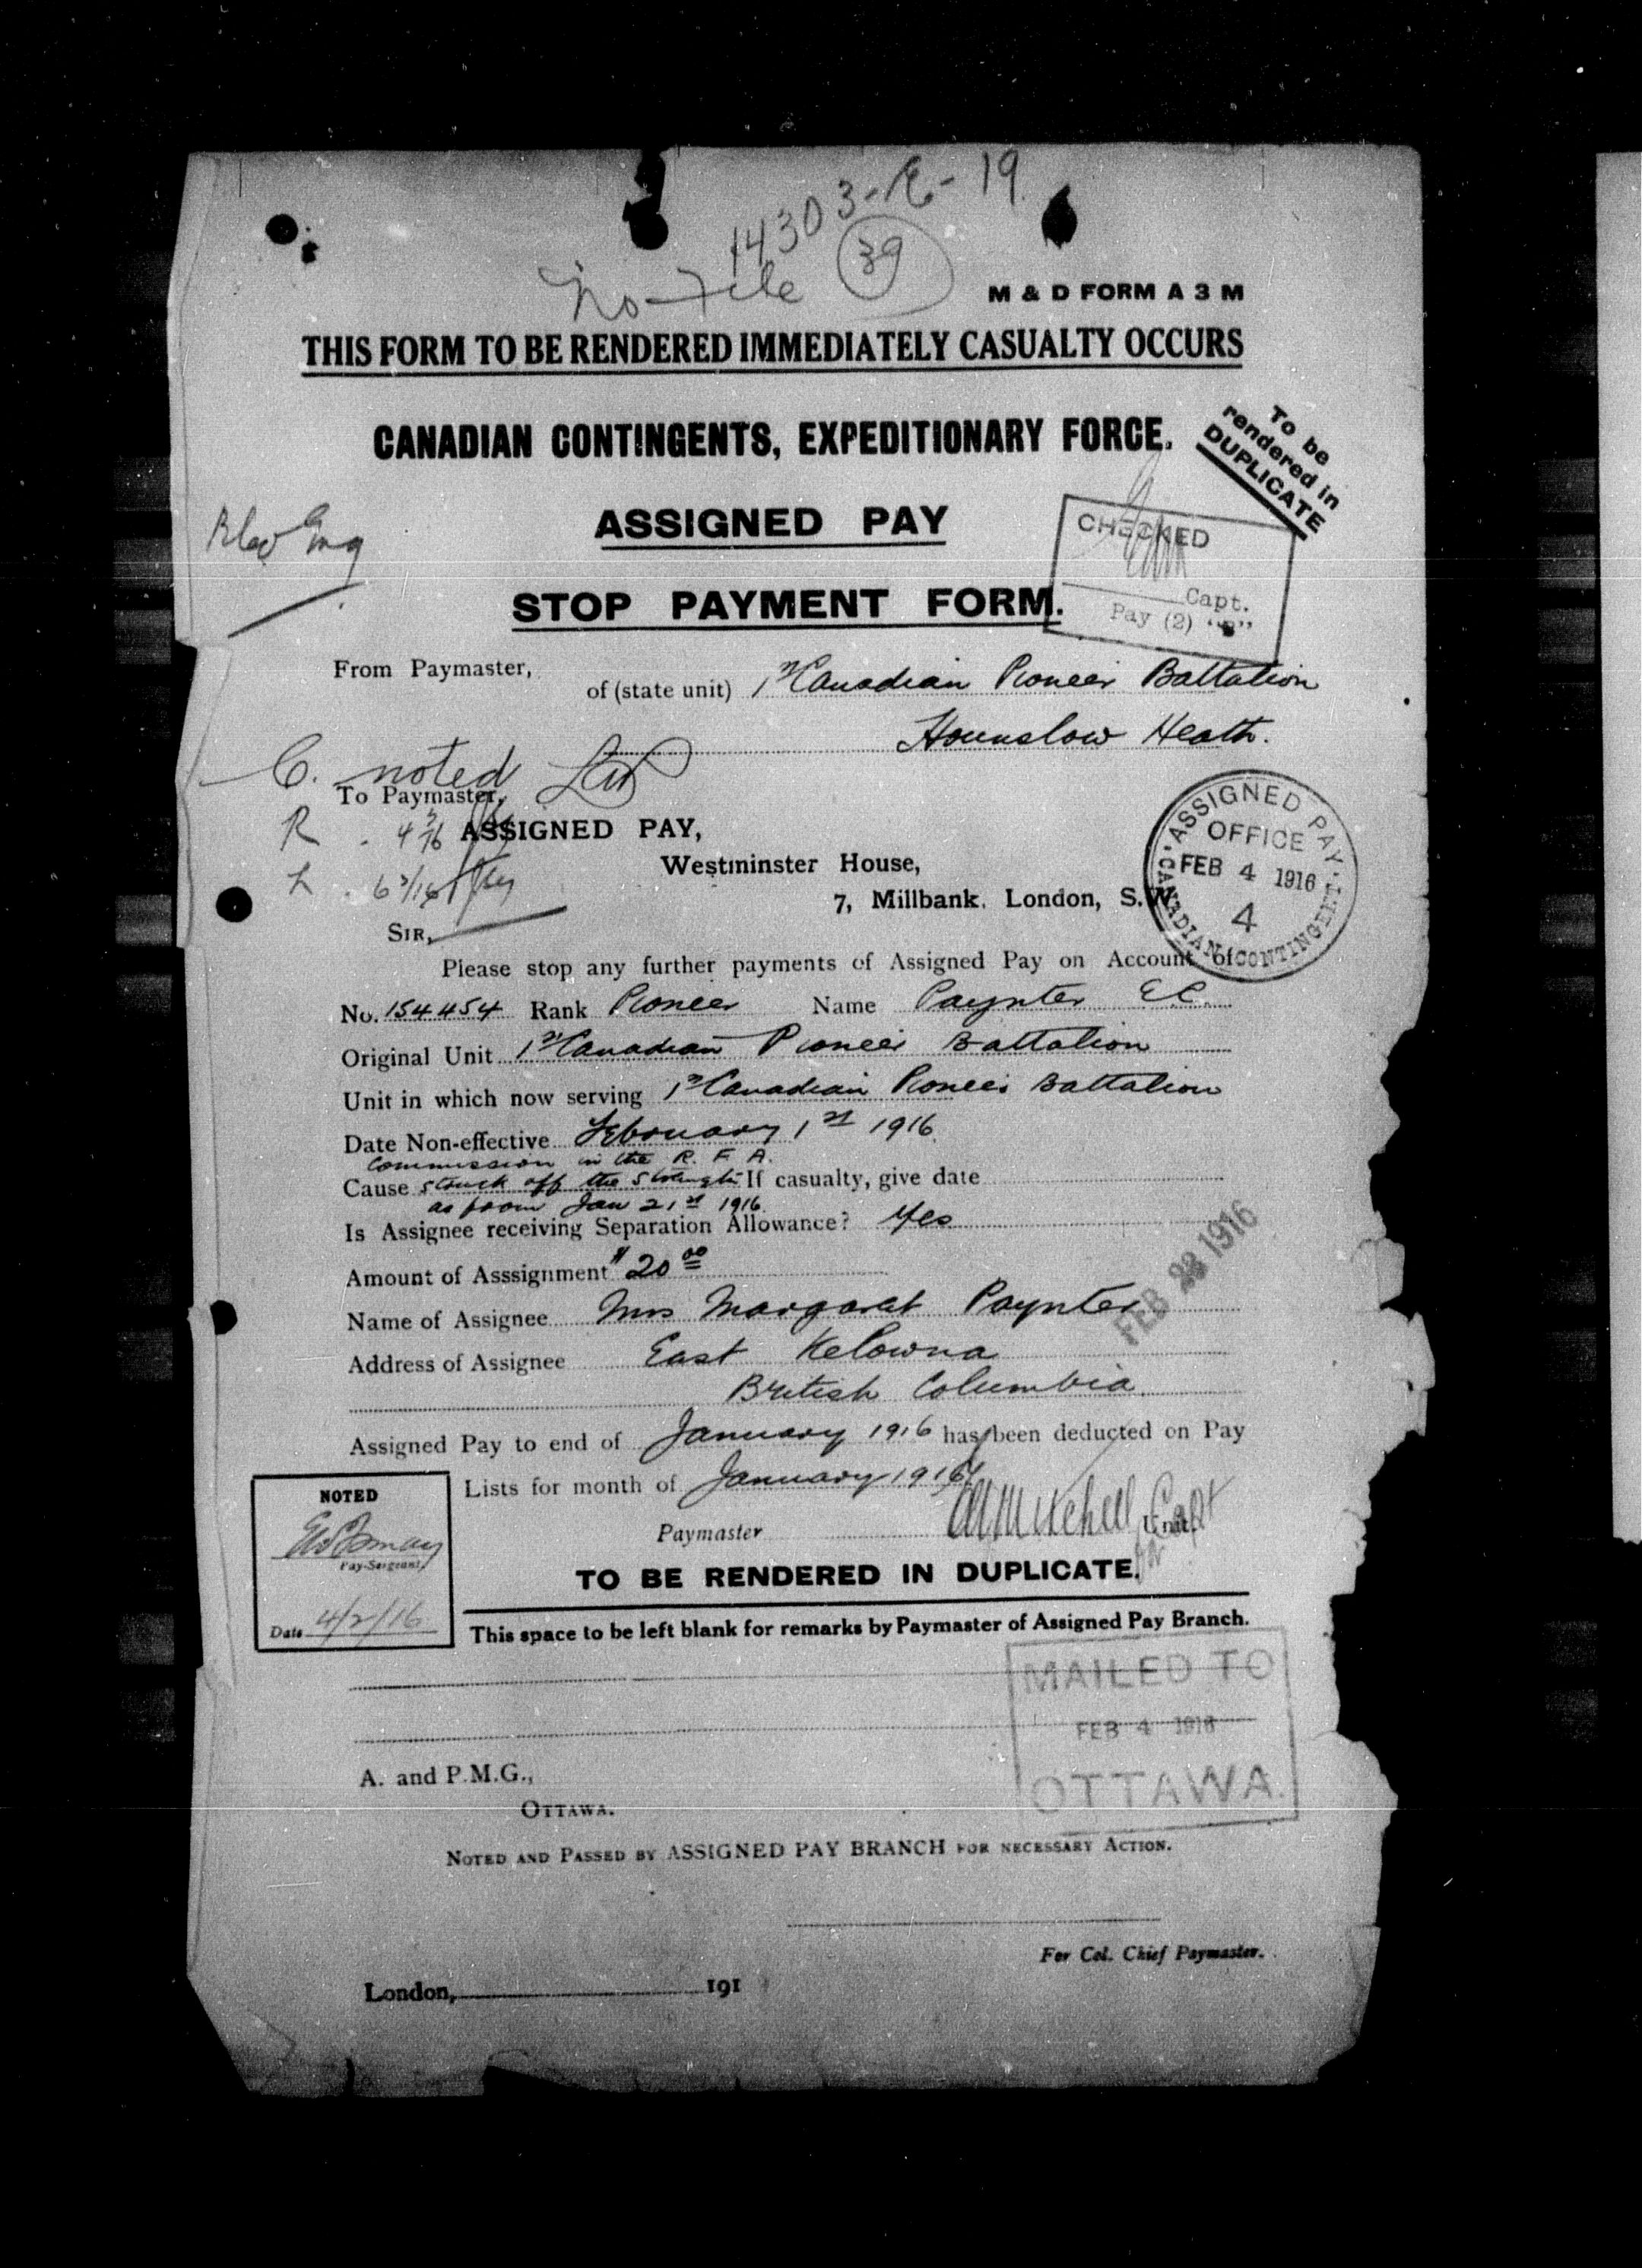 14303-E-19
No File 39
M & D FORM A 3 M
THIS FORM TO BE RENDERED IMMEDIATELY CASUALTY OCCURS
CANADIAN CONTINGENTS, EXPEDITIONARY FORCE.
To be
rendered in
DUPLICATE
ASSIGNED PAY
CHECKED
Capt.
Pay (2)
STOP PAYMENT FORM.
From Paymaster,
of (state unit) 1st Canadian Pioneer Battalion
Hounslow Heath.
C. noted
To Paymaster,
R
ASSIGNED PAY,
Westminster House,
7, Millbank, London, S.W.
ASSIGNED PAY
OFFICE
FEB 4 1916
4
CANADIAN CONTINGENT
SIR,
Please stop any further payments of Assigned Pay on Account of
No. 154454 Rank Pioneer Name Paynter E.C.
Original Unit 1st Canadian Pioneer Battalion
Unit in which now serving 1st Canadian Pioneer Battalion
Date Non-effective February 1st 1916
Commission in the R. F. A.
Cause struck off the strength If casualty, give date
as from Jan 21st 1916.
Is Assignee receiving Separation Allowance? Yes
Amount of Asssignment $20.00
Name of Assignee Mrs Margaret Paynter
Address of Assignee East Kelowna
British Columbia
Assigned Pay to end of January 1916 has been deducted on Pay
Lists for month of January 1916
Paymaster Mitchell Capt Unit
NOTED
Pay-Sergeant
Date 4/2/16
TO BE RENDERED IN DUPLICATE.
This space to be left blank for remarks by Paymaster of Assigned Pay Branch.
MAILED TO
FEB 4 1916
OTTAWA.
A. and P.M.G.,
OTTAWA.
NOTED AND PASSED BY ASSIGNED PAY BRANCH FOR NECESSARY ACTION.
For Col. Chief Paymaster.
London, 191